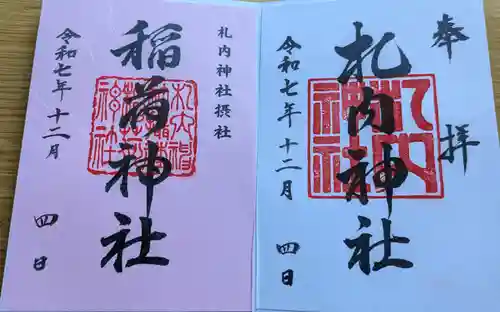 奉拝
札内神社
札内神社
令和七年十二月四日
札内神社摂社
稲荷神社
令和七年十二月四日